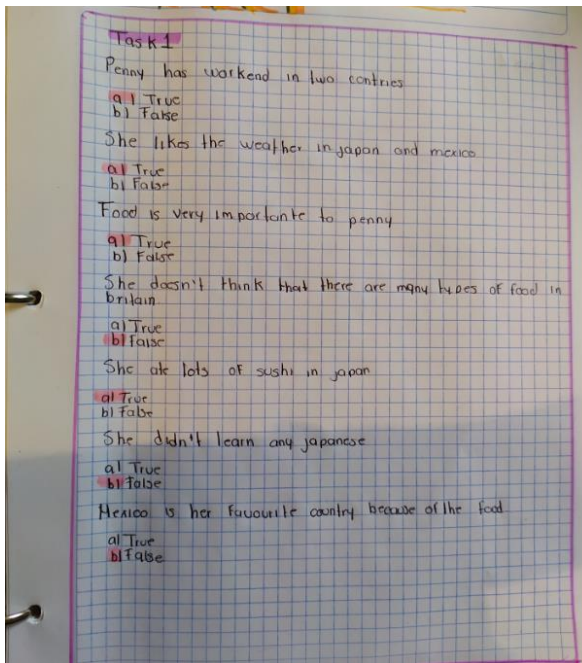 Task 1
Penny has workend in two contries
a) True
b) False
She likes the weather in japan and mexico
a) True
b) False
Food is very importante to penny
a) True
b) False
She doesn't think that there are many types of food in
britain
a) True
b) False
She ate lots of sushi in japan
a) True
b) False
She didn't learn any japanese
a) True
b) False
Mexico is her favourite country because of the food
a) True
b) False